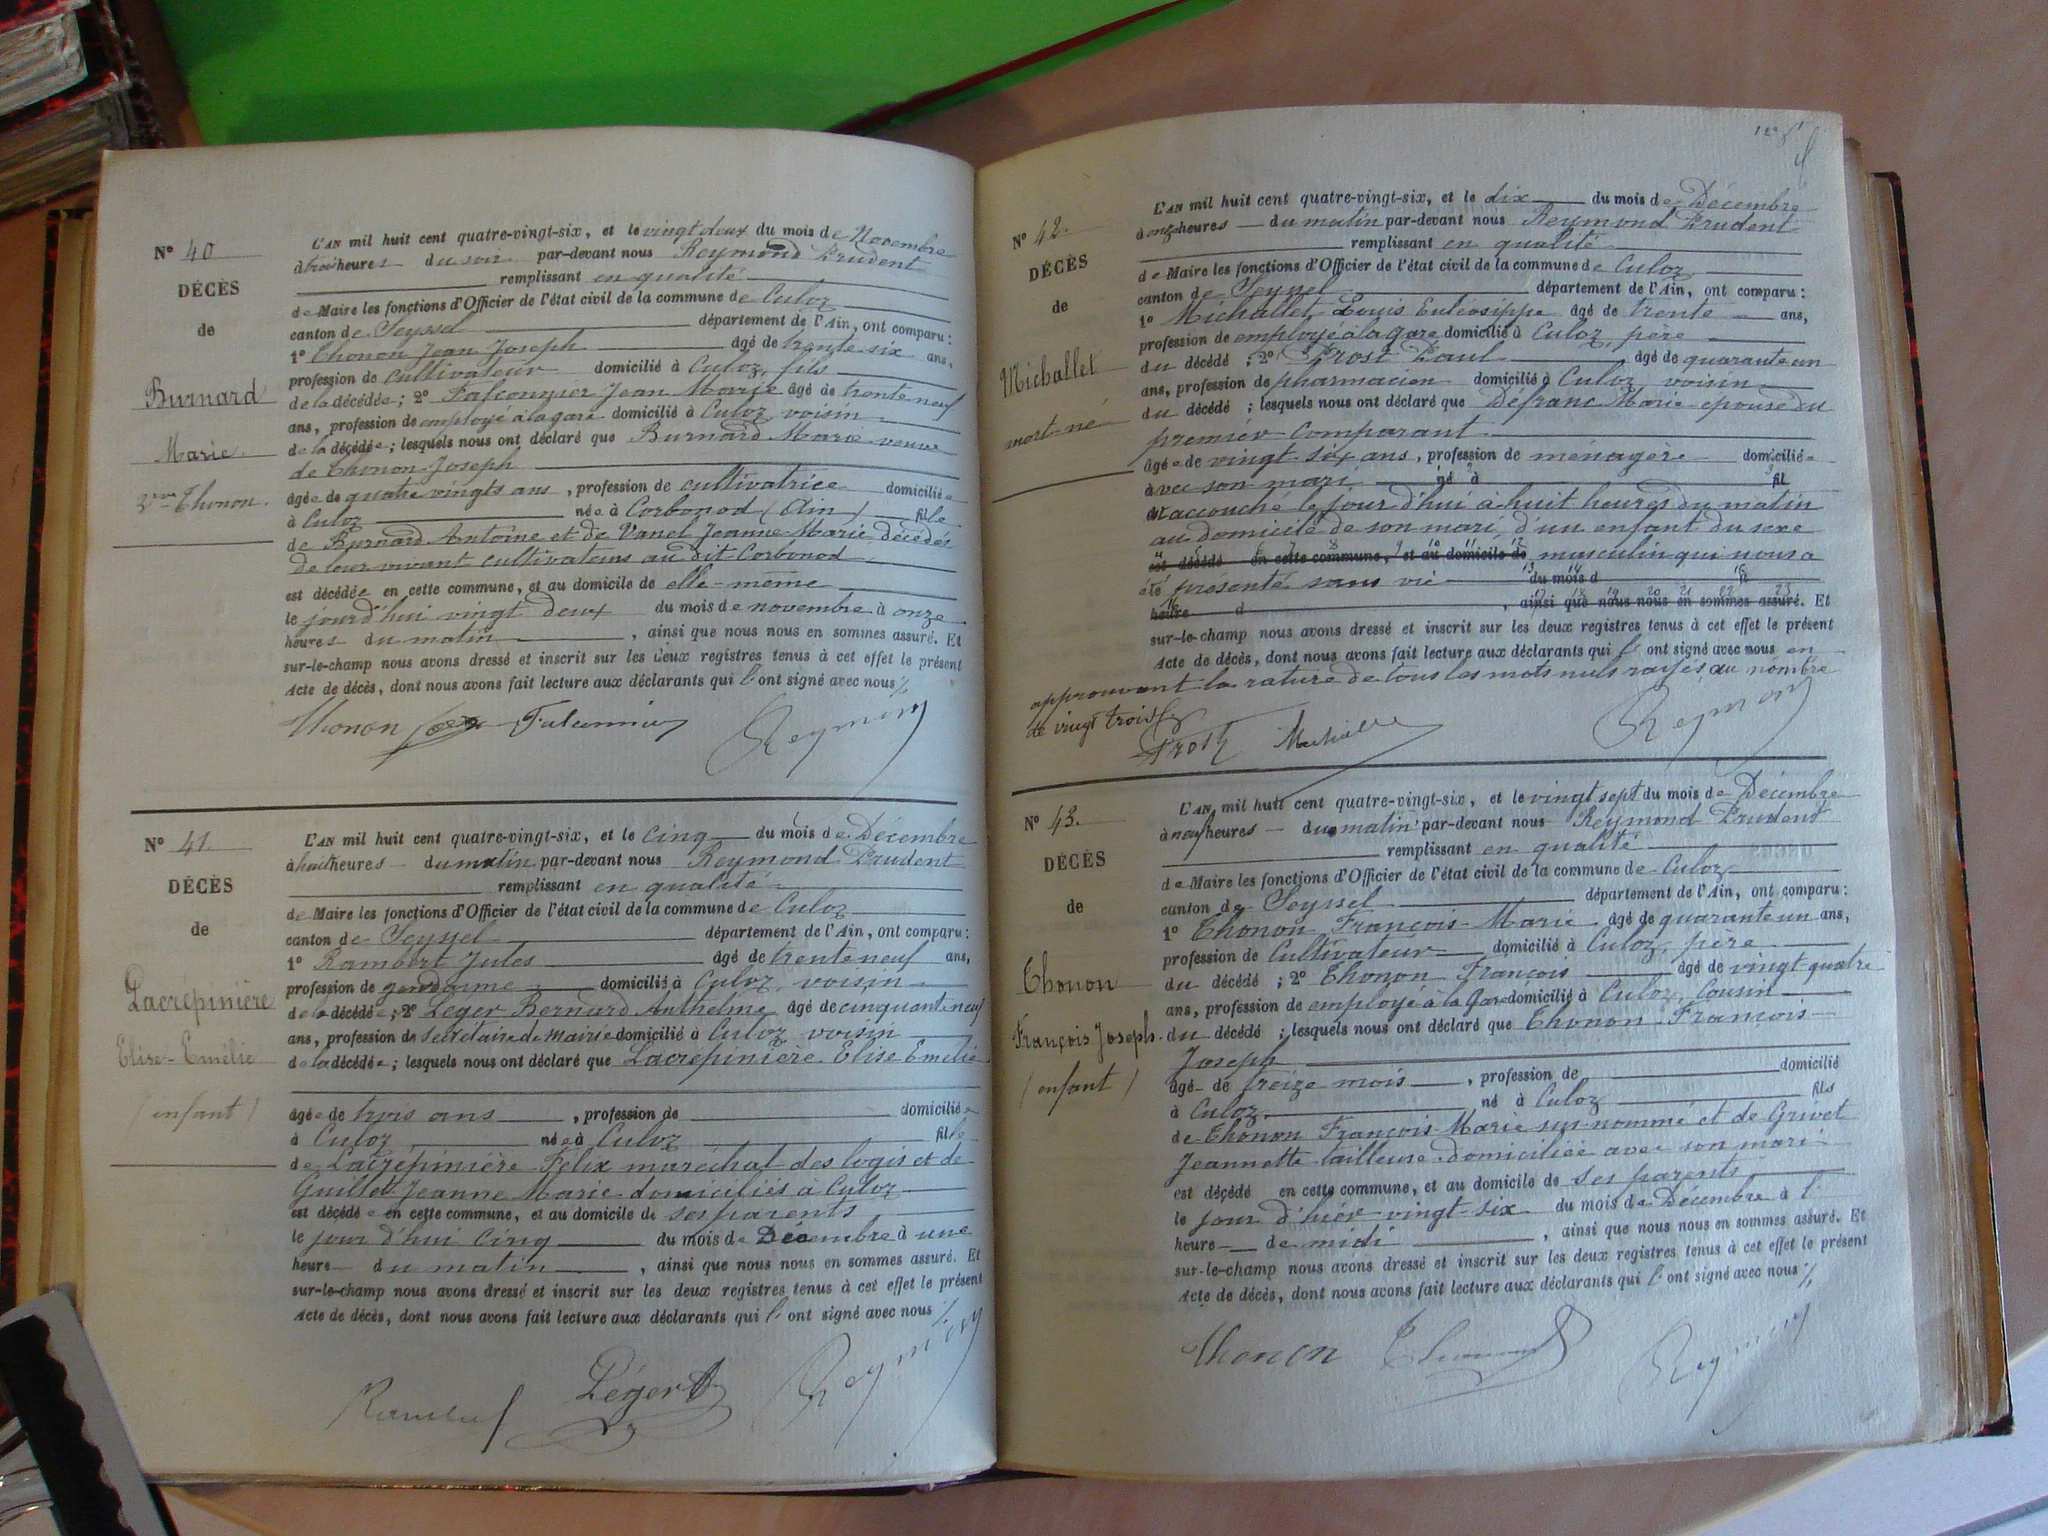 N° 40
DÉCÈS
de
Burnard
Marie
Vve Thonon.
L'AN mil huit cent quatre-vingt-six, et le vingt deux du mois de Novembre
à trois heures du soir par-devant nous Reymond Prudent
remplissant en qualité
de Maire les fonctions d'Officier de l'état civil de la commune de Culoz
canton de Seyssel département de l'Ain, ont comparu :
1° Thonon Jean Joseph âgé de trente six ans,
profession de cultivateur domicilié à Culoz, fils
de la décédée ; 2° Falconnier Jean Marie âgé de trente neuf
ans, profession de employé à la gare domicilié à Culoz voisin
de la décédée ; lesquels nous ont déclaré que Burnard Marie veuve
de Thonon Joseph
âgée de quatre vingts ans , profession de cultivatrice domiciliée
à Culoz née à Corbonod (Ain) fille
de Burnard Antoine et de Vanel Jeanne Marie décédés
de leur vivant cultivateurs au dit Corbonod
est décédée en cette commune, et au domicile de elle-même
le jourd'hui vingt deux du mois de novembre à onze
heures du matin , ainsi que nous nous en sommes assuré. Et
sur-le-champ nous avons dressé et inscrit sur les deux registres tenus à cet effet le présent
Acte de décès, dont nous avons fait lecture aux déclarants qui l' ont signé avec nous
Thonon Falconnier Reymond
N° 41.
DÉCÈS
de
Lacrépinière
Elise-Emélie
(enfant)
L'AN mil huit cent quatre-vingt-six, et le cinq du mois de Décembre
à huit heures du matin par-devant nous Reymond Prudent
remplissant en qualité
de Maire les fonctions d'Officier de l'état civil de la commune de Culoz
canton de Seyssel département de l'Ain, ont comparu :
1° Rambert Jules âgé de trente neuf ans,
profession de gendarme domicilié à Culoz, voisin
de la décédée ; 2° Léger Bernard Anthelme âgé de cinquante neuf
ans, profession de secrétaire de mairie domicilié à Culoz voisin
de la décédée ; lesquels nous ont déclaré que Lacrépinière Elise Emélie
âgée de trois ans , profession de domiciliée
à Culoz née à Culoz fille
de Lacrépinière Félix maréchal des logis et de
Guillet Jeanne Marie domiciliés à Culoz
est décédée en cette commune, et au domicile de ses parents
le jour d'hui cinq du mois de Décembre à une
heure du matin , ainsi que nous nous en sommes assuré. Et
sur-le-champ nous avons dressé et inscrit sur les deux registres tenus à cet effet le présent
Acte de décès, dont nous avons fait lecture aux déclarants qui l' ont signé avec nous
Léger Reymond
N° 42.
DÉCÈS
de
Michallet
mort-né
L'AN mil huit cent quatre-vingt-six, et le dix du mois de Décembre
à onze heures du matin par-devant nous Reymond Prudent
remplissant en qualité
de Maire les fonctions d'Officier de l'état civil de la commune de Culoz
canton de Seyssel département de l'Ain, ont comparu :
1° Michallet Louis Euléosippe âgé de trente ans,
profession de employé à la gare domicilié à Culoz, père
du décédé ; 2° Prost Paul âgé de quarante un
ans, profession de pharmacien domicilié à Culoz voisin
du décédé ; lesquels nous ont déclaré que Défranc Marie épouse du
premier comparant
âgée de vingt-six ans, profession de ménagère domiciliée
avec son mari né à fil
a accouché le jour d'hui à huit heures du matin
au domicile de son mari, d'un enfant du sexe
est décédé en cette commune, et au domicile de masculin qui nous a
été présenté sans vie du mois d à
heure d , ainsi que nous nous en sommes assuré. Et
sur-le-champ nous avons dressé et inscrit sur les deux registres tenus à cet effet le présent
Acte de décès, dont nous avons fait lecture aux déclarants qui l' ont signé avec nous en
approuvant la rature de tous les mots nuls rayés au nombre
de vingt trois
Prost Michallet Reymond
N° 43.
DÉCÈS
de
Thonon
François Joseph
(enfant)
L'AN mil huit cent quatre-vingt-six, et le vingt sept du mois de Décembre
à neuf heures du matin par-devant nous Reymond Prudent
remplissant en qualité
de Maire les fonctions d'Officier de l'état civil de la commune de Culoz
canton de Seyssel département de l'Ain, ont comparu :
1° Thonon François-Marie âgé de quarante un ans,
profession de Cultivateur domicilié à Culoz, père
du décédé ; 2° Thonon François âgé de vingt-quatre
ans, profession de employé à la gare domicilié à Culoz, cousin
du décédé ; lesquels nous ont déclaré que Thonon François-
Joseph
âgé de treize mois , profession de domicilié
à Culoz né à Culoz fils
de Thonon François-Marie sus-nommé et de Grivet
Jeannette tailleuse domiciliée avec son mari
est décédé en cette commune, et au domicile de ses parents
le jour d'hier vingt-six du mois de Décembre à l'
heure de midi , ainsi que nous nous en sommes assuré. Et
sur-le-champ nous avons dressé et inscrit sur les deux registres tenus à cet effet le présent
Acte de décès, dont nous avons fait lecture aux déclarants qui l' ont signé avec nous
Thonon Reymond